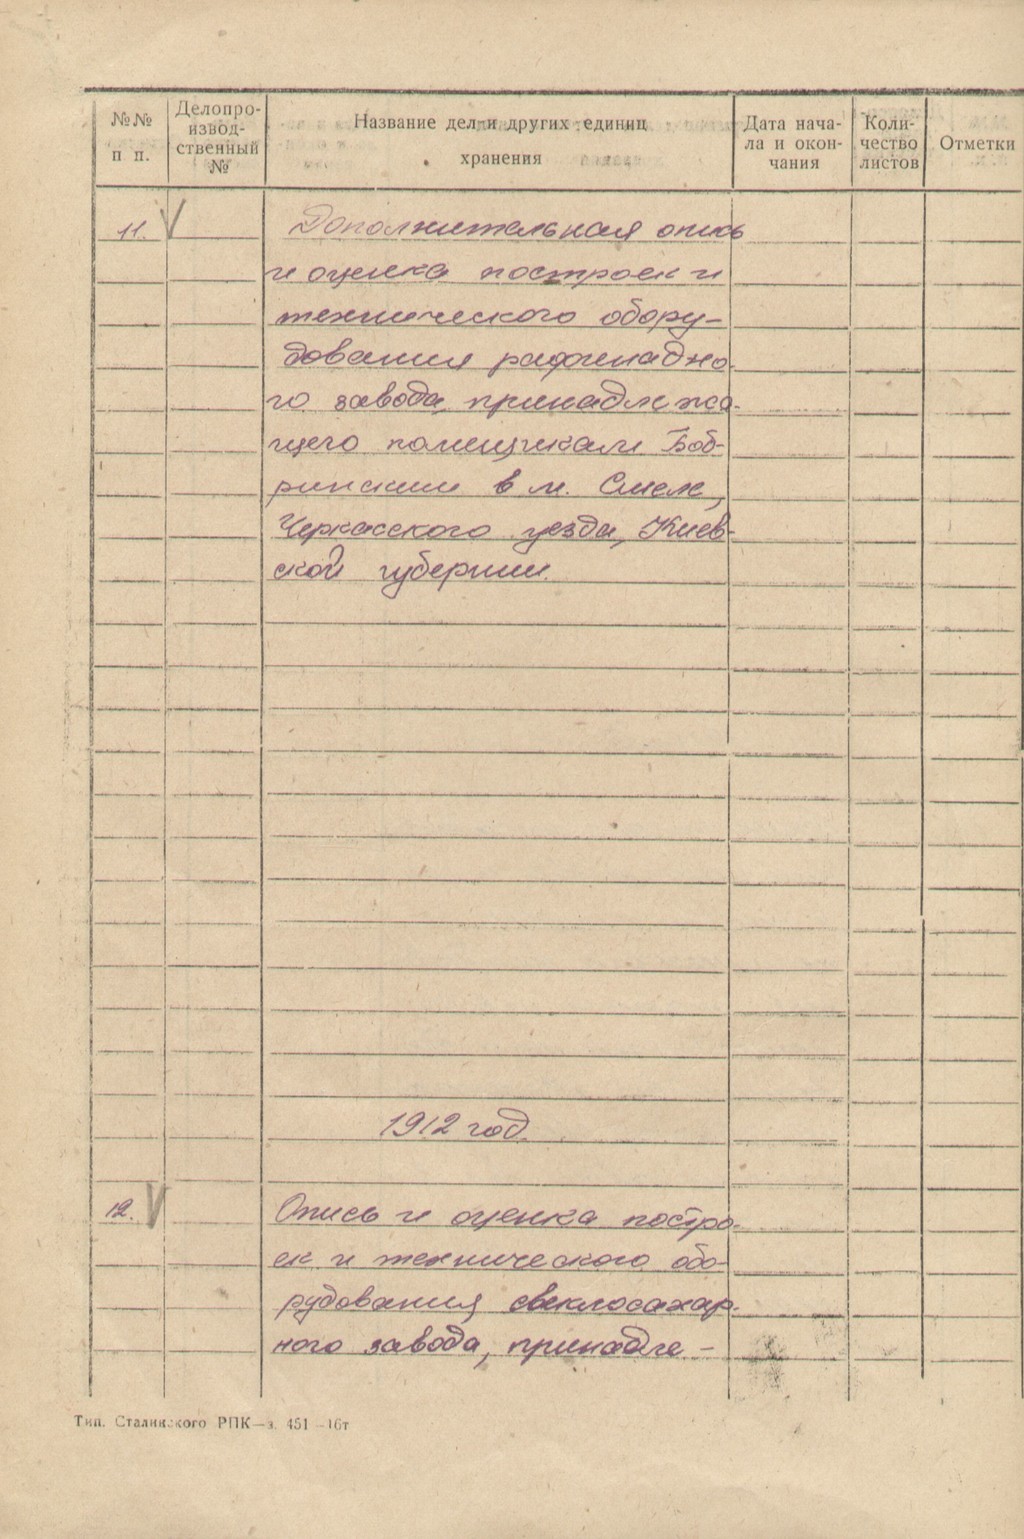 №№ п п.
Делопро-
извод-
ственный
№
Название дел и других единиц
хранения
Дата нача-
ла и окон-
чания
Коли-
чество
листов
Отметки
11. V Дополнительная опись
и оценка построек и
технического обору-
дования рафинадно-
го завода, принадлежа-
щего помещикам Боб-
ринским в м. Смеле,
Черкасского уезда, Киев-
ской губернии.
1912 год.
12. V Опись и оценка постро-
ек и технического обо-
рудования свеклосахар-
ного завода, принадле-
Тип. Сталинского РПК—з. 451 —16т